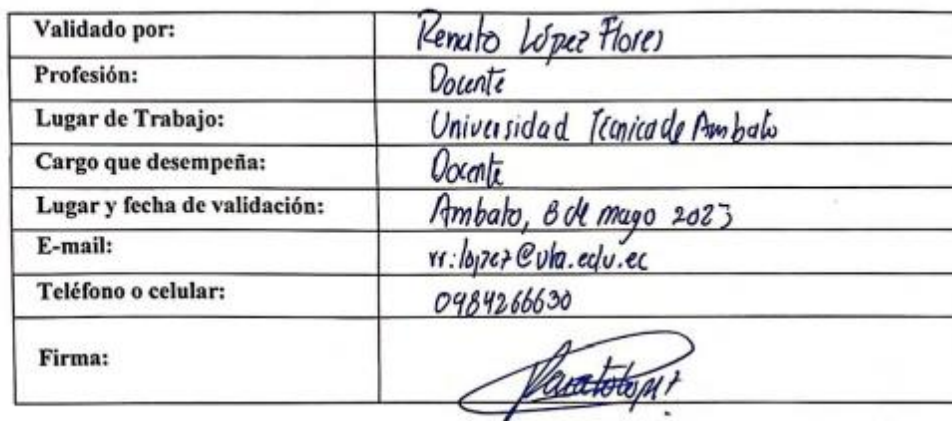 Validado por: Renato López Flores
Profesión: Docente
Lugar de Trabajo: Universidad Técnica de Ambato
Cargo que desempeña: Docente
Lugar y fecha de validación: Ambato, 8 de mayo 2023
E-mail: rr.lopez@uta.edu.ec
Teléfono o celular: 0984266630
Firma: Renato Lopez